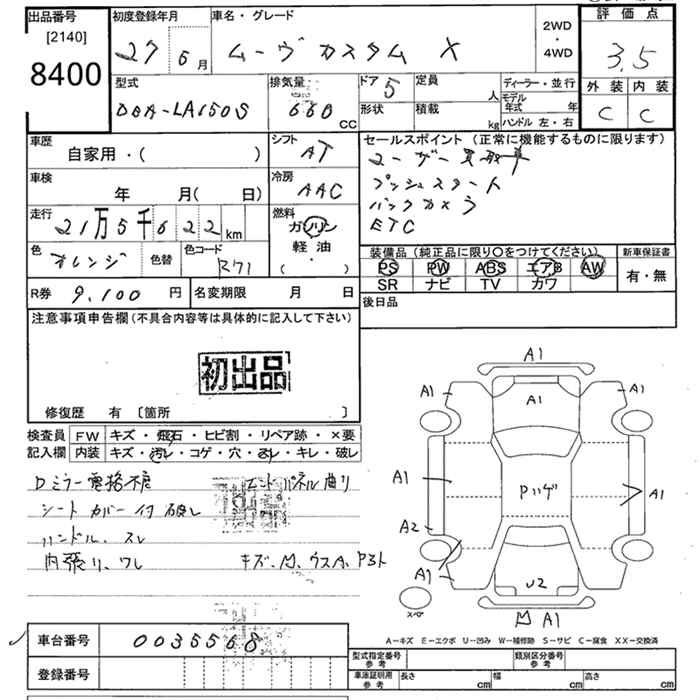 出品番号
[2140]
8400
初度登録年月
27 6月
車名・グレード
ムーヴカスタム X
2WD
・
4WD
評価点
3.5
外装 内装
C C
型式
DBA-LA150S
排気量
660 CC
ドア 5
形状
定員 人
積載 kg
ディーラー・並行
モデル年式 年
ハンドル 左・右
車歴
自家用・( )
シフト
AT
車検
年 月( 日)
冷房
AAC
走行
21万5千622 km
燃料
ガソリン
軽油
( ・ )
色
オレンジ
色替
色コード
R71
R券 9,100 円
名変期限 月 日
セールスポイント (正常に機能するものに限ります)
ユーザー買取車
プッシュスタート
バックカメラ
ETC
装備品 (純正品に限り○をつけてください)
PS PW ABS エアB AW
SR ナビ TV カワ
新車保証書
有・無
後日品
注意事項申告欄 (不具合内容等は具体的に記入して下さい)
初出品
修復歴 有 [箇所 ]
検査員記入欄
FW キズ・飛石・ヒビ割・リペア跡・×要
内装 キズ・汚レ・コゲ・穴・スレ・キレ・破レ
Dミラー電格不良 エンドパネル曲り
シートカバー付 破レ
ハンドル、スレ
内張り、ワレ キズ、凹、ウスA、
A1
A1 A1 A1
A1 Pハゲ A1
A2
A1
U2
A1
A-キズ E-エクボ U-凹み W-補修跡 S-サビ C-腐食 XX-交換済
車台番号 0035568
登録番号
型式指定番号 参考
類別区分番号 参考
車庫証明用 参考
長さ cm
幅 cm
高さ cm